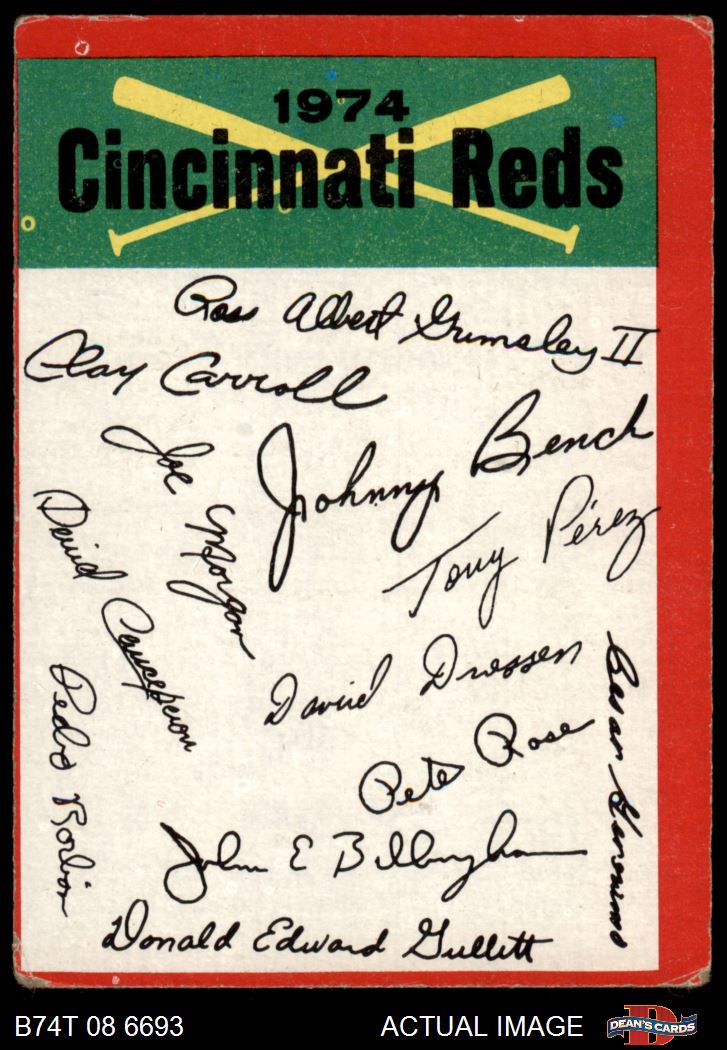 1974
Cincinnati Reds
Ross Albert Grimsley II
Clay Carroll
Johnny Bench
Joe Morgan
Tony Pérez
David Concepcion
David Driessen
Cesar Geronimo
Pedro Borbon
Pete Rose
John E Billingham
Donald Edward Gullett
B74T 08 6693
ACTUAL IMAGE
D
DEAN'S CARDS